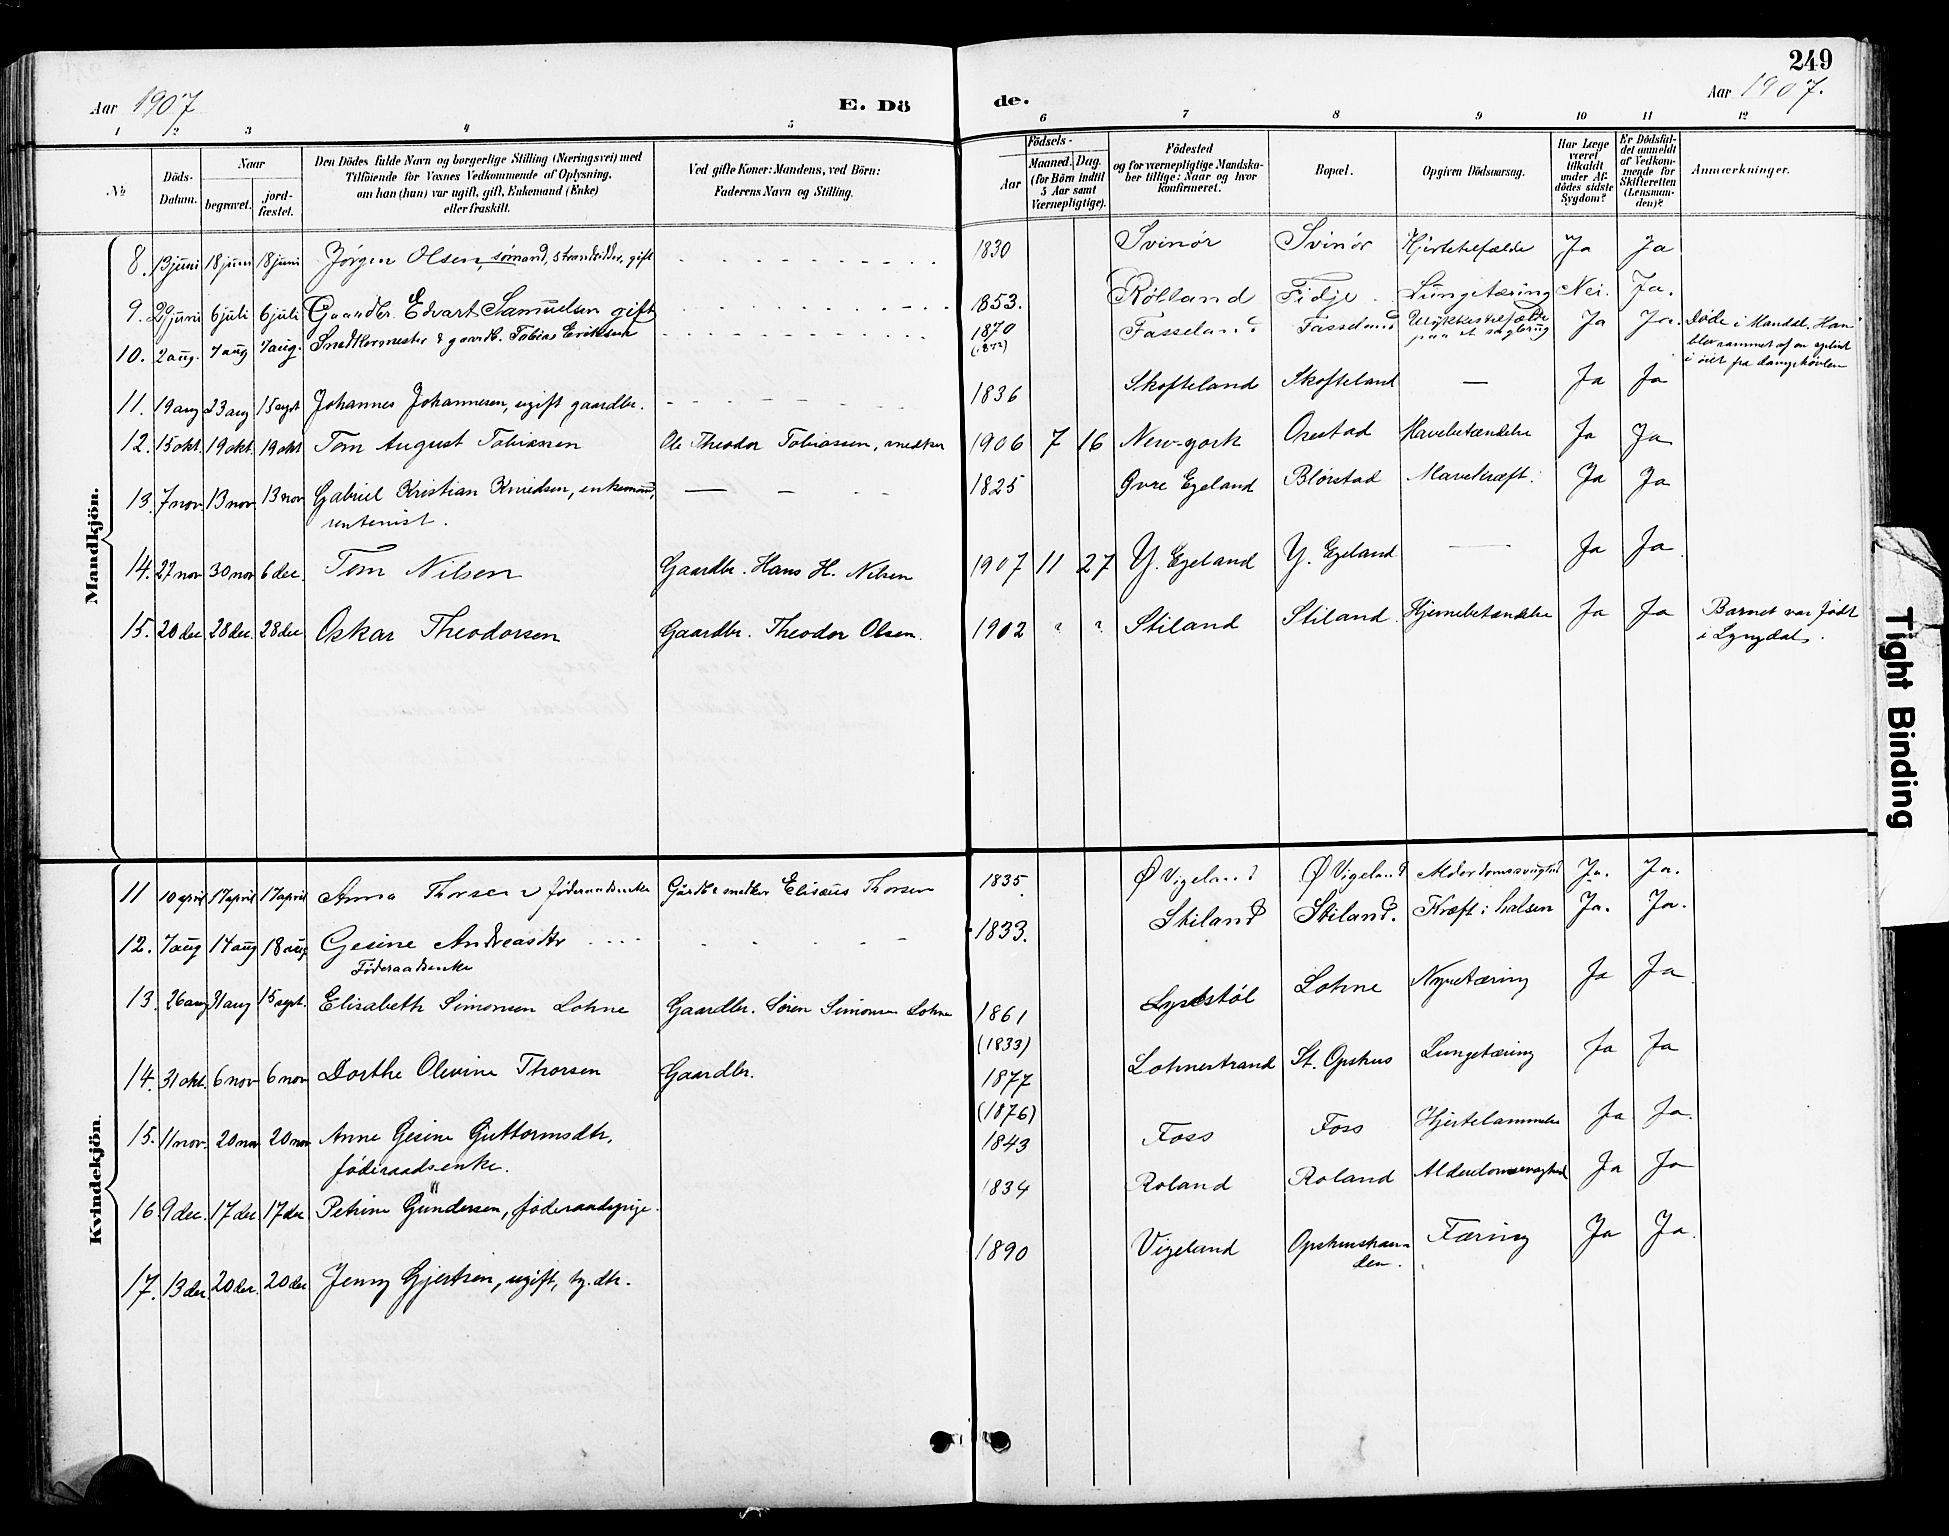 249
Aar 1907
E. Dö
de.
Aar 1907.
1 2 3 4 5 6 7 8 9 10 11 12
№
Döds-Datum.
Naar
begravet.
jord-fæstet.
Den Dödes fulde Navn og borgerlige Stilling (Næringsvei) med
Tilföiende för Voxnes Vedkommende af Oplysning,
om han (hun) var ugift, gift, Enkemand (Enke)
eller fraskilt.
Ved gifte Koner: Mandens, ved Börn:
Faderens Navn og Stilling.
Födsels-
Aar
Maaned.
Dag.
(for Börn indtil
5 Aar samt
Værnepligtige).
Födested
og for værnepligtige Mandska-
ber tillige: Naar og hvor
konfirmeret.
Bopæl.
Opgiven Dödsaarsag.
Har Læge
været
tilkaldt
under Af-
dödes sidste
Sygdom?
Er Dödsfal-
det anmeldt
af Vedkom-
mende for
Skifteretten
(Lensman-
den)?
Anmærkninger.
Mandkjön.
8. 13 juni 18 juni 18 juni Jørgen Olsen, sømand, strandsidder, gift 1830 Svinör Svinör Hjertetilfælde Ja Ja
9. 29 juni 6 juli 6 juli Gaardbr. Edvart Samuelsen gift 1853. Rölland Fidje Lungetæring Nei. Ja.
10. 2 aug. 7 aug 7 aug. Snedkermester & gaardb. Tobias Eriksen 1870 (1872) Fasseland Fasseland Ulykkestilfælde paa et sagbrug Ja Ja. Döde i Mandal, Han
blev rammet af en splint
i öiet fra damphövlen
11. 19 aug 23 aug 15 sept Johannes Johannesen, ugift gaardbr. 1836 Skofteland Skofteland — Ja Ja
12. 15 okt. 19 okt. 19 okt Tom August Tobiassen Ole Theodor Tobiassen, snedker 1906 7 16 New-york Orestad Mavebetændelse Ja Ja
13. 7 nov 13 nov 13 nov Gabriel Kristian Knudsen, enkemand,
rentenist. 1825 Øvre Egeland Blörstad Mavekræft. Ja Ja
14. 27 nov 30 nov 6 dec. Tom Nilsen Gaardbr. Hans H. Nilsen 1907 11 27 Y. Egeland Y. Egeland — Ja Ja
15. 20 dec 28 dec. 28 dec Oskar Theodorsen Gaardbr. Theodor Olsen. 1902 ? ? Stiland Stiland Hjernebetændelse Ja Ja Barnet var født
i Lyngdal.
Kvindekjön.
11 10 april 17 april 17 april Anna Thorsen føderaadsenke Gårdb & snedker Elisæus Thorsen 1835. Ø Vigeland Ø Vigeland Alderdomssvaghed Ja. Ja.
12. 7 aug 14 aug 18 aug Gesine Andreasdtr
Føderaadsenke 1833. Stiland Stiland. Kræft i halsen Ja. Ja.
13. 26 aug 31 aug 15 sept. Elisabeth Simonsen Lohne Gaardbr. Sören Simonsen Lohne 1861 (1833) Lohne Nyretæring Ja Ja
14. 31 okt. 6 nov 6 nov Dorthe Olevine Thorsen Gaardbr. 1877 (1876) Lohnestrand St. Opshus Lungetæring Ja Ja
15. 11 nov. 20 nov 20 nov Anne Gesine Guttormsdtr,
føderaadsenke. 1843 Foss Foss Hjertelammelse Ja Ja.
16 9 dec. 17 dec 17 dec Petrine Gundersen, føderaadspige. 1834 Roland Roland Alderdomssvaghed Ja Ja
17. 13 dec. 20 dec. 20 dec Jenny Gjertsen, ugift, tj. dtr. 1890 Vigeland Tæring Ja Ja.
Tight Binding